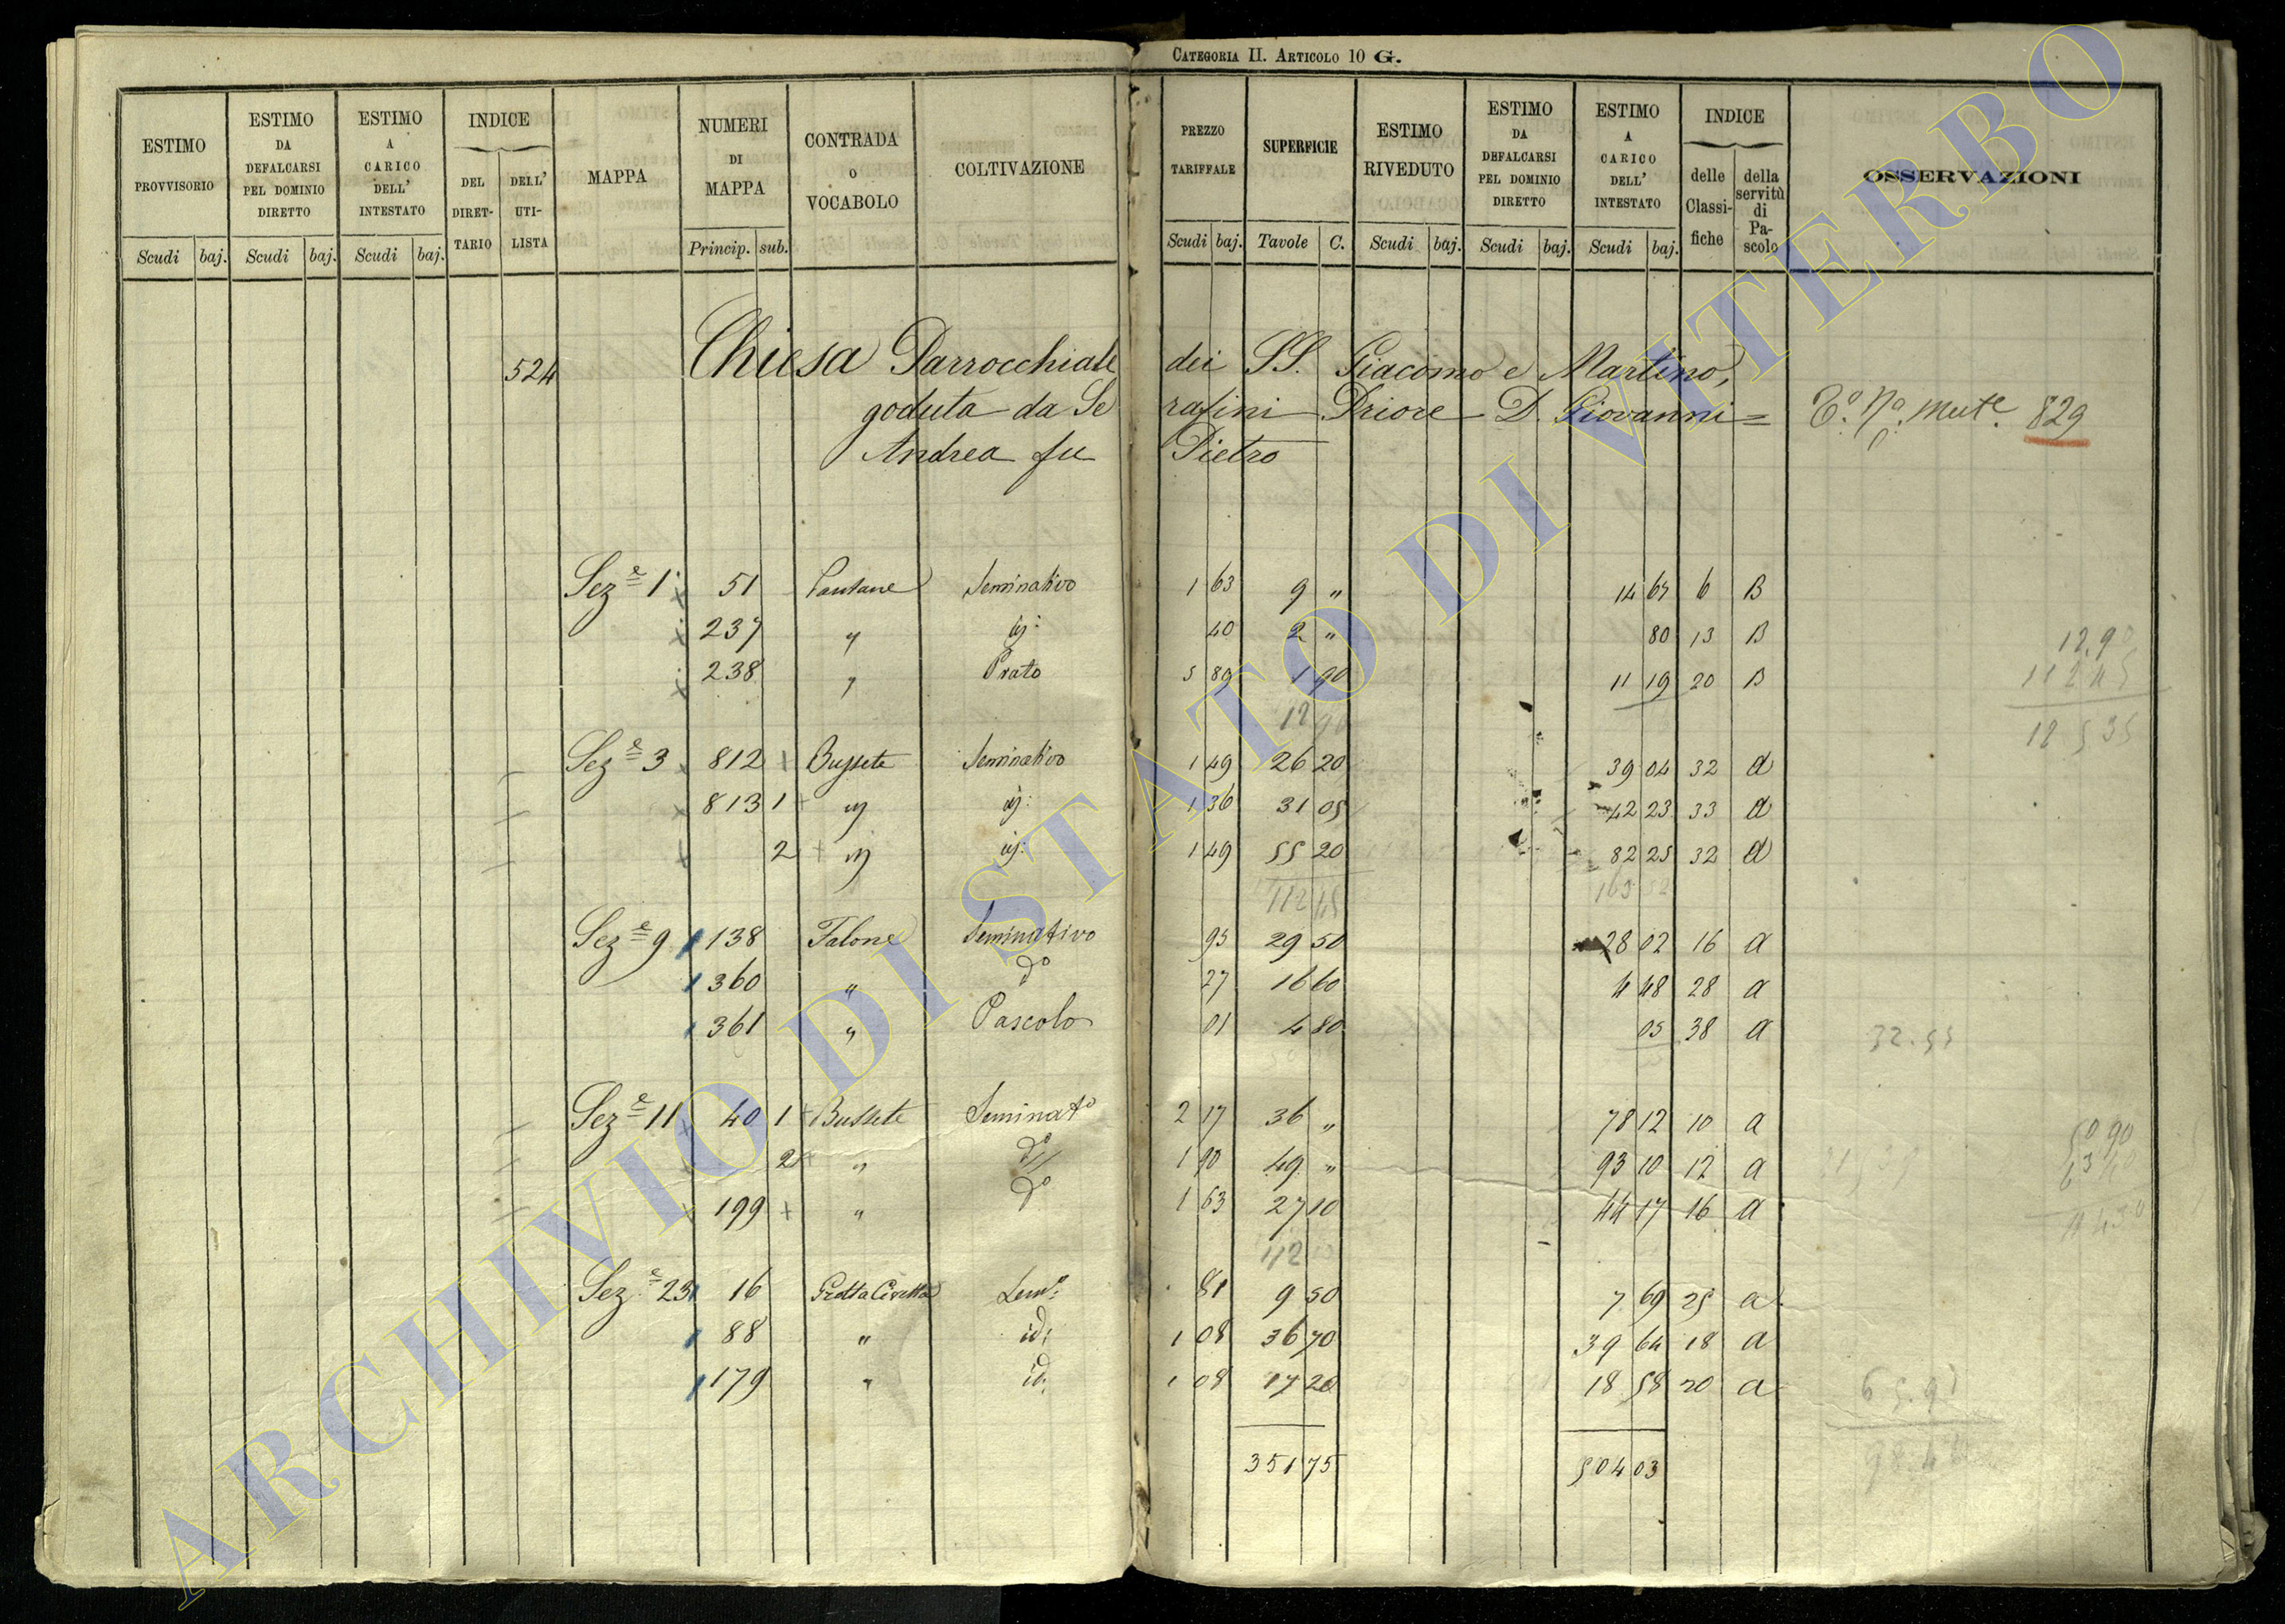 CATEGORIA II. ARTICOLO 10 G.
ESTIMO PROVVISORIO Scudi baj.
ESTIMO DA DEFALCARSI PEL DOMINIO DIRETTO Scudi baj.
ESTIMO A CARICO DELL' INTESTATO Scudi baj.
INDICE DEL DIRET-TARIO DELL' UTI-LISTA
MAPPA
NUMERI DI MAPPA Princip. sub.
CONTRADA O VOCABOLO
COLTIVAZIONE
PREZZO TARIFFALE Scudi baj.
SUPERFICIE Tavole C.
ESTIMO RIVEDUTO Scudi baj.
ESTIMO DA DEFALCARSI PEL DOMINIO DIRETTO Scudi baj.
ESTIMO A CARICO DELL' INTESTATO Scudi baj.
INDICE delle Classi-fiche della servitù di Pa-scolo
OSSERVAZIONI
524 Chiesa Parrocchiale dei SS. Giacomo e Martino,
goduta da Se rafini Priore D. Giovanni = 829
Andrea fu Pietro
Sez.e 1 51 Pantane Seminativo 1 63 9 " 14 67 6 B
237 " id: 40 2 " 80 13 B
238 " Prato 5 89 1 90 11 19 20 B
12 90
12.90
112 45
125 35
Sez.e 3 812 Bussete Seminativo 1 49 26 20 39 04 32 a
813 1 " id: 1 36 31 05 42 23 33 a
2 " id: 1 49 55 20 82 25 32 a
112 45 163 52
Sez.e 9 138 Falone Seminativo 95 29 50 28 02 16 a
360 " do 27 16 60 4 48 28 a
361 " Pascolo 01 4 80 05 38 a
32.55
Sez.e 11 40 1 Bussete Seminato 2 17 36 " 78 12 10 a
2 " do 1 90 49 " 93 10 12 a
199 " do 1 63 27 10 44 17 16 a
112
50 90
63 40
114 30
Sez.e 23 16 Grotta Civetta Sem.o 81 9 50 7 69 25 a
88 " id: 1 08 36 70 39 64 18 a
179 " id: 1 08 17 20 18 58 20 a
65.91
351 75 504 03
98.46
ARCHIVIO DI STATO DI VITERBO